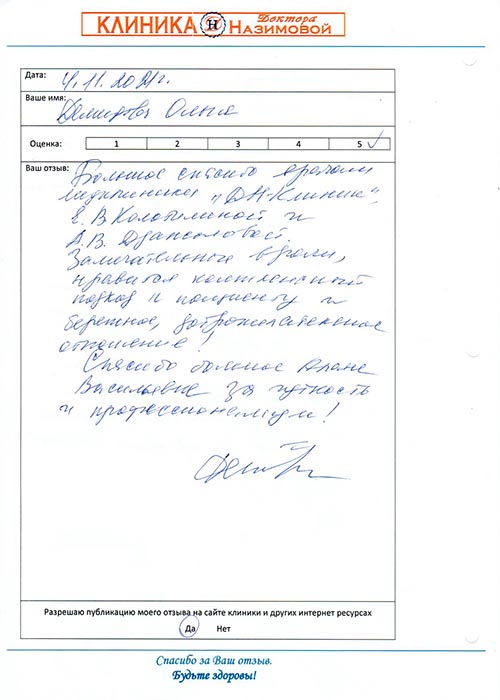 КЛИНИКА Н Доктора Назимовой
Дата: 4.11.2021г.
Ваше имя:
Демидова Ольга
Оценка: 1 2 3 4 5 ✓
Ваш отзыв: Большое спасибо врачам
медклиники „ДН-Клиник",
Е. В. и
А. В.
Замечательные врачи,
нравится комплексный
подход к пациенту и
бережное, доброжелательное
отношение!
Спасибо большое Алане
Васильевне за чуткость
и профессионализм!
Разрешаю публикацию моего отзыва на сайте клиники и других интернет ресурсах
Да Нет
Спасибо за Ваш отзыв.
Будьте здоровы!